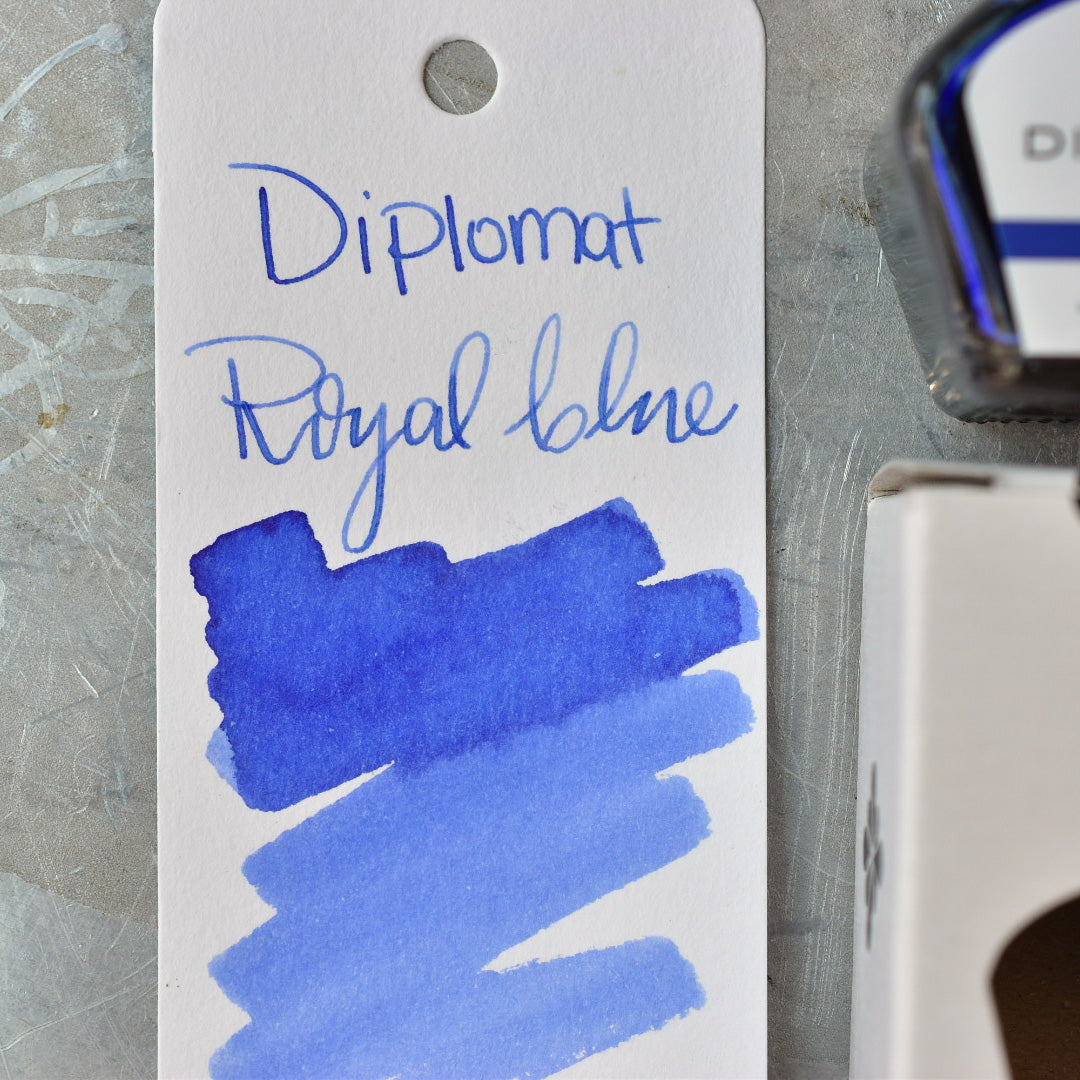 Diplomat
Royal blue
DI